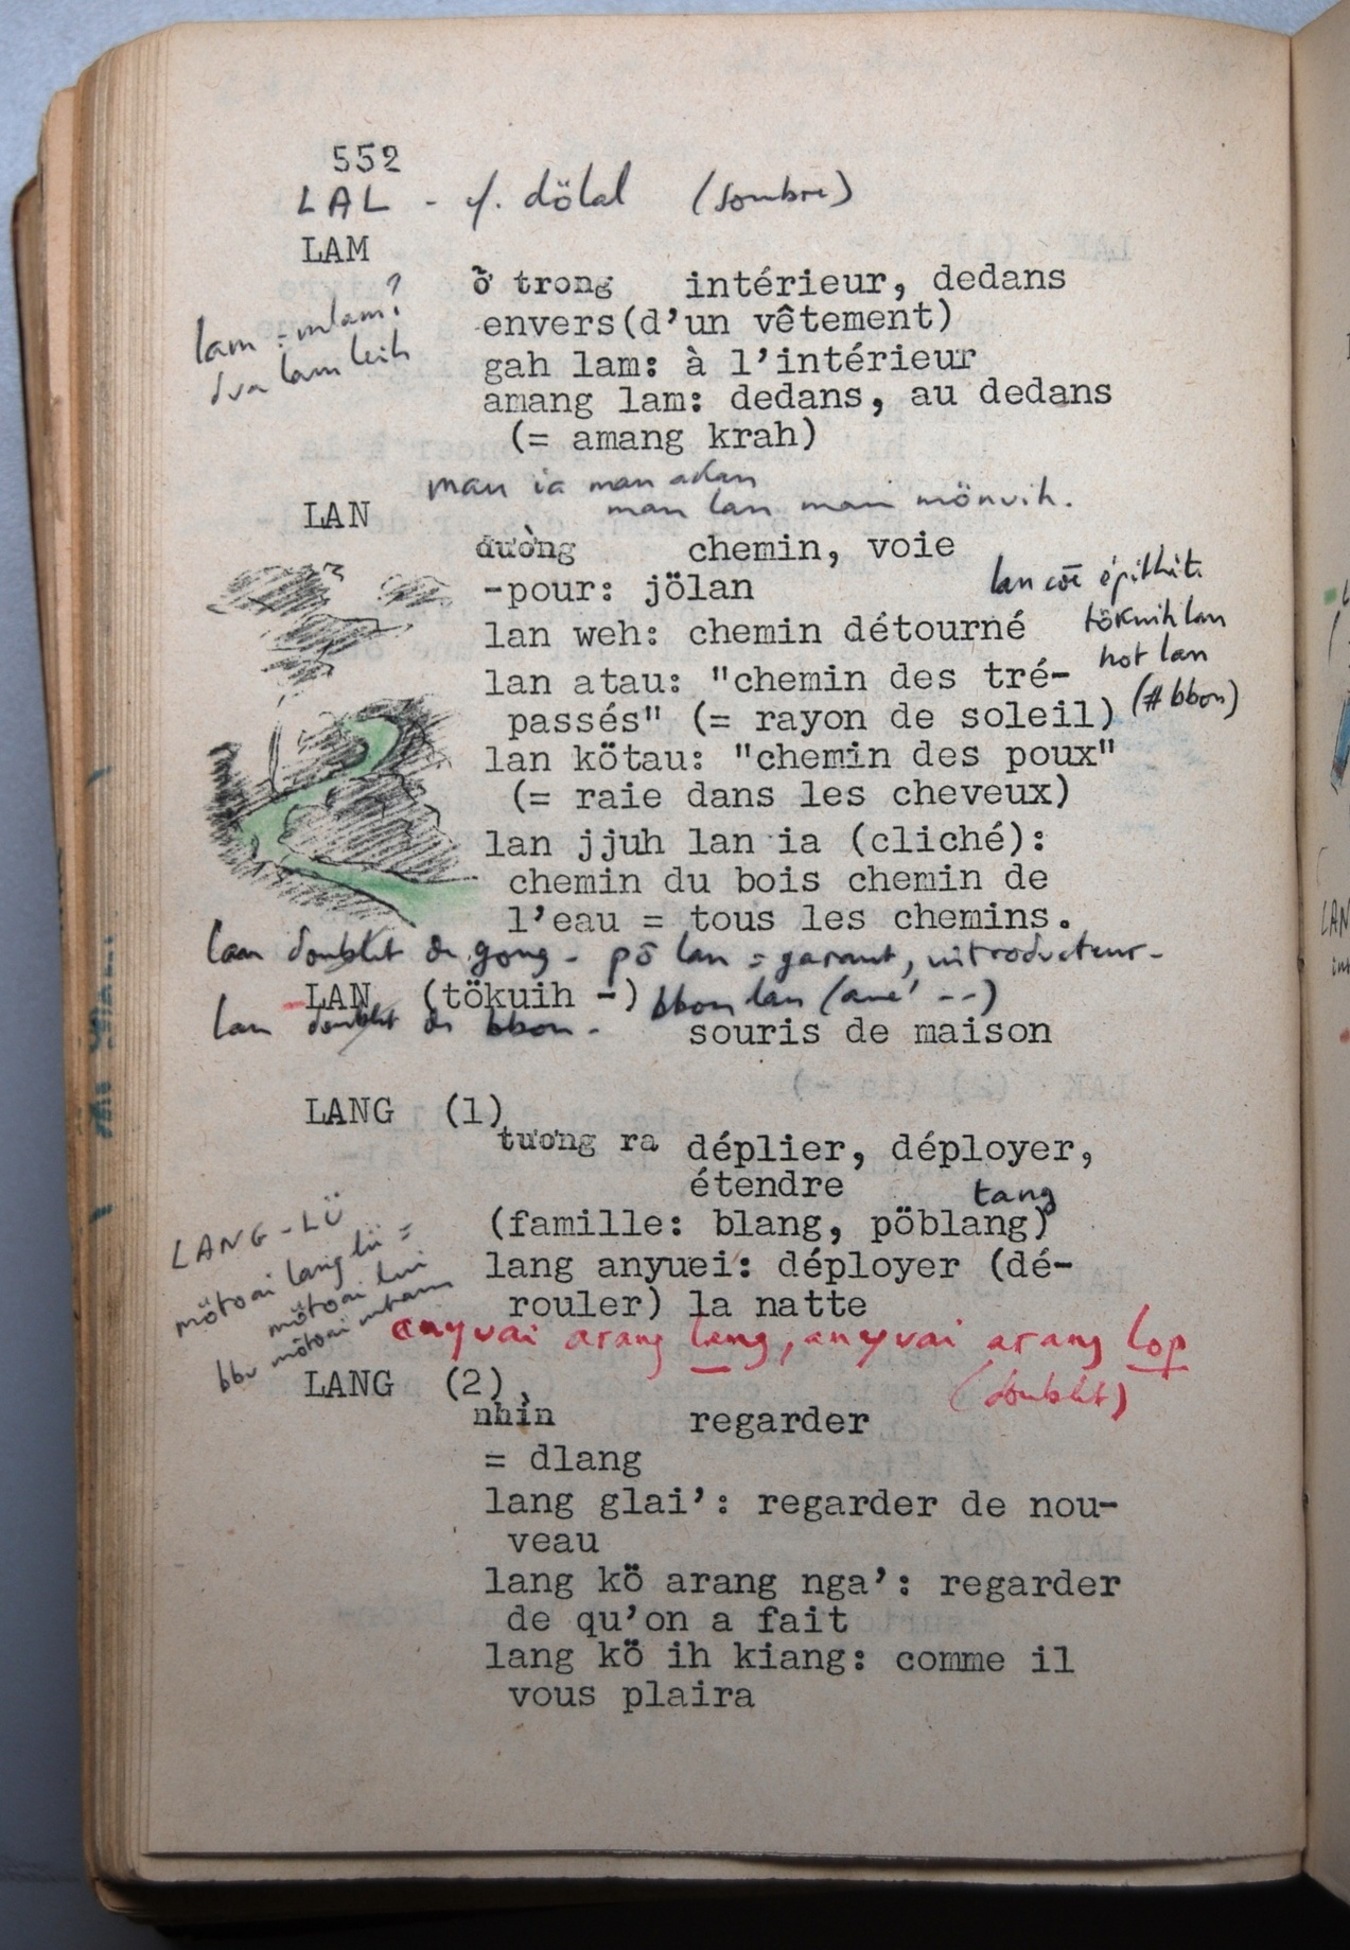 552
LAL - cf. dölal (sombre)
LAM
ở trong intérieur, dedans
lam = mlam?
dva lam leih
envers(d'un vêtement)
gah lam: à l'intérieur
amang lam: dedans, au dedans
(= amang krah)
man ia man adan
man lan man mönvih.
LAN
đường chemin, voie
-pour: jölan
lan épithète
lan weh: chemin détourné
tökuih lan
hot lan
(# bbon)
lan atau: "chemin des tré-
passés" (= rayon de soleil)
lan kötau: "chemin des poux"
(= raie dans les cheveux)
lan jjuh lan ia (cliché):
chemin du bois chemin de
l'eau = tous les chemins.
lan doublet de gong - pô lan = garant, introducteur-
LAN (tökuih -) bbon lan (ane' --)
lan doublet de bbon -
souris de maison
LANG (1)
tương ra déplier, déployer,
étendre
tang
(famille: blang, pöblang)
LANG-LÜ
mötoai lang lü =
mötoai lui
bbu mötoai mtam
lang anyuei: déployer (dé-
rouler) la natte
anyvai arang lang, anyvai arang lop
(doublet)
LANG (2)
nhìn regarder
= dlang
lang glai': regarder de nou-
veau
lang kö arang nga': regarder
de qu'on a fait
lang kö ih kiang: comme il
vous plaira